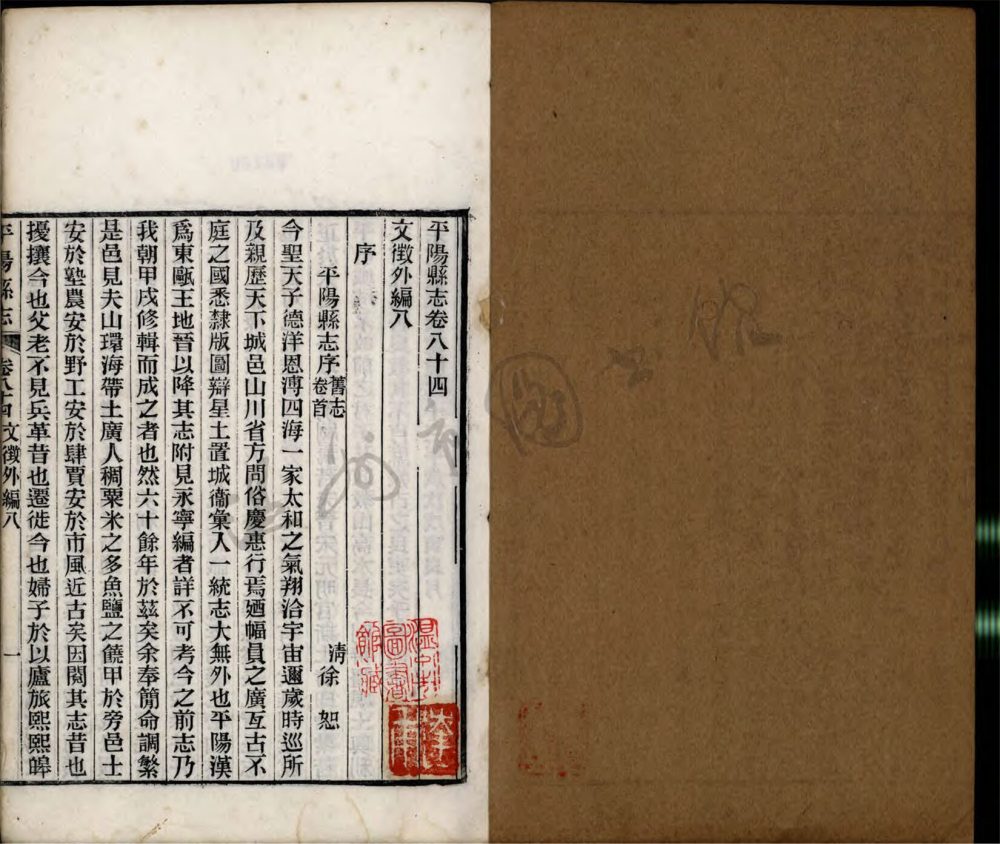 平陽縣志卷八十四
文徵外編八
序
平陽縣志序舊志卷首
清徐恕
今聖天子德洋恩溥四海一家太和之氣翔洽宇宙邇歲時巡所
及親歷天下城邑山川省方問俗慶惠行焉廼幅員之廣亙古不
庭之國悉隸版圖辯星土置城衞彙入一統志大無外也平陽漢
爲東甌王地晉以降其志附見永寧編者詳不可考今之前志乃
我朝甲戌修輯而成之者也然六十餘年於茲矣余奉簡命調繁
是邑見夫山環海帶土廣人稠粟米之多魚鹽之饒甲於旁邑士
安於塾農安於野工安於肆賈安於市風近古矣因閱其志昔也
擾攘今也父老不見兵革昔也遷徙今也婦子於以廬旅熙熙皞
平陽縣志 卷八十四文徵外編八 一
圖書
館藏